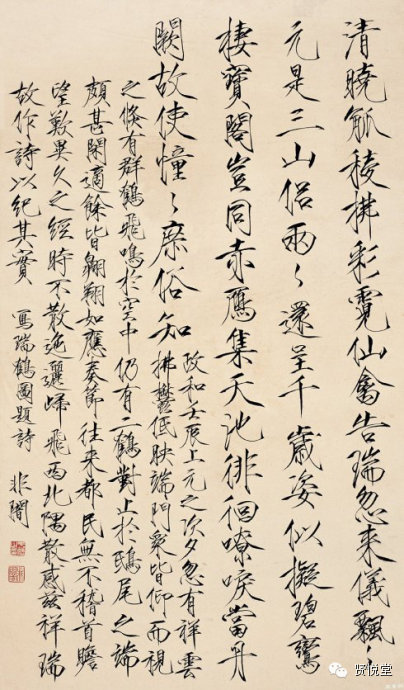 清曉觚稜拂彩霓仙禽告瑞忽来儀飄〻
元是三山侶兩〻還呈千歳姿似擬碧鸞
棲寳閣豈同赤鴈集天池徘徊嘹唳當丹
闕故使憧〻庶俗知
政和壬辰上元之次夕忽有祥雲
拂鬱低映端門衆皆仰而視
之倏有群鶴飛鳴於空中仍有二鶴對止於鴟尾之端
頗甚閑適餘皆翱翔如應奏節往来都民無不稽首瞻
望歎異久之經時不散迤邐歸飛西北隅散感兹祥瑞
故作詩以紀其實 寫瑞鶴圖題詩 非闇
贤悦堂